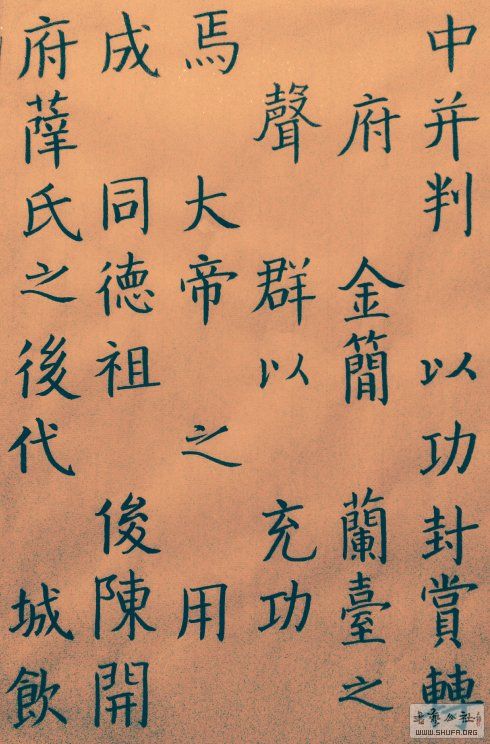 中并判 以功封賞轉
府 金簡 蘭臺之
聲 群以 充功
焉 大帝 之 用
成 同德祖 俊陳開
府薛氏之後代 城飲
WWW.SHUFA.ORG